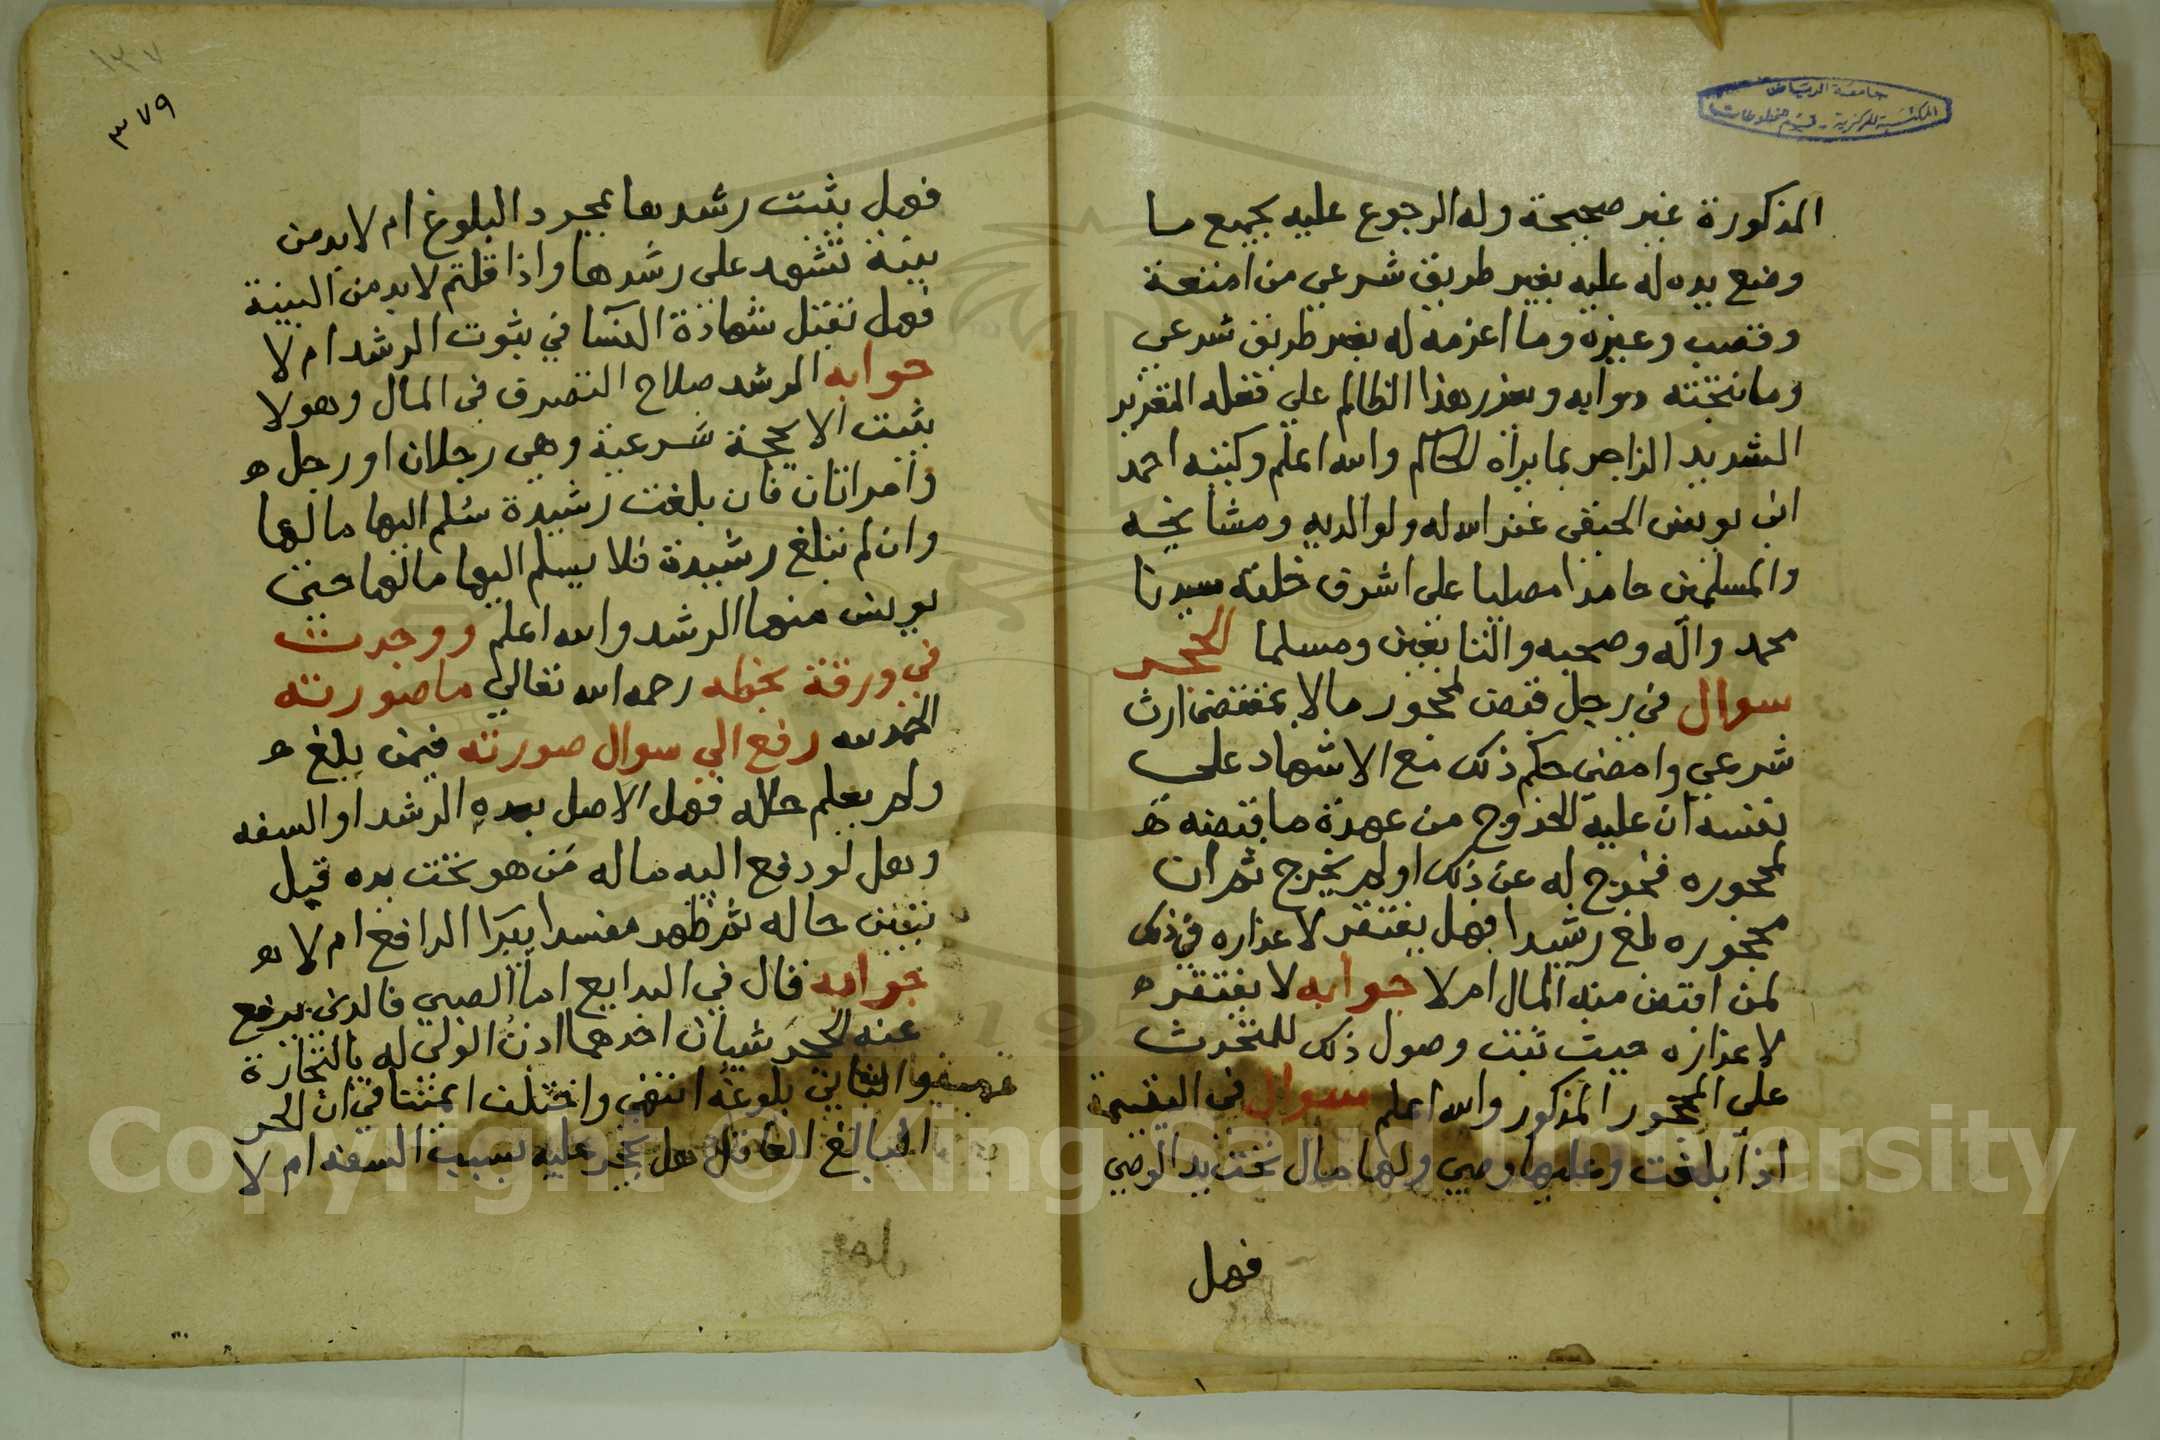 جامعة الرياض
المكتبة المركزية - قسم المخطوطات
المذكورة غير صحيحة وله الرجوع عليه بجميع ما
وضع يده له عليه بغير طريق شرعي من امتعة
وقصب وغيره وما اغرمه له بغير طريق شرعي
وما نتجته دوابه ويعزر هذا الظالم على فعله التعزير
الشديد الزاجر بما يراه الحاكم والله اعلم وكتبه احمد
ابن يونس الحنفي غفر الله له ولوالديه ومشايخه
والمسلمين حامدا مصليا على اشرف خلقه سيدنا
محمد واله وصحبه والتابعين ومسلما الحجر
سوال في رجل قبض لمحجور مالا بمقتضى ارث
شرعي وامضى حكم ذلك مع الاشهاد على
نفسه ان عليه الخروج من عهدة ما قبضه
لمحجوره فخرج له عن ذلك او لم يخرج ثم ان
محجوره بلغ رشيدا فهل يفتقر لاعذاره في ذلك
لمن اقتض منه المال ام لا جوابه لا يفتقر
لاعذاره حيث ثبت وصول ذلك للمتحدث
على المحجور المذكور والله اعلم سوال في اليتيمة
اذا بلغت وعليها وصي ولها مال تحت يد الوصي
فهل
١٣٧
٣٧٩
فهل يثبت رشدها بمجرد البلوغ ام لا بد من
بينة تشهد على رشدها واذا قلتم لا بد من البينة
فهل تقبل شهادة النسا في ثبوت الرشد ام لا
جوابه الرشد صلاح التصرف في المال وهو لا
يثبت الا بحجة شرعية وهي رجلان او رجل
وامراتان فان بلغت رشيدة سلم اليها مالها
وان لم تبلغ رشيدة فلا يسلم اليها مالها حتى
يونس منها الرشد والله اعلم ووجدت
في ورقة بخطه رحمه الله تعالى ما صورته
الحمد لله رفع الي سوال صورته فيمن بلغ
ولم يعلم حاله فهل الاصل بعده الرشد او السفه
وهل لو دفع اليه ماله من هو تحت يده قبل
تبين حاله ثم ظهر مفسدا يبرا الدافع ام لا
جوابه قال في البدايع اما الصبي فالذي يرفع
عنه الحجر شيان احدهما اذن الولي له بالتجارة
والثاني بلوغه انتهى واختلف ايمتنا في ان الحر
البالغ العاقل هل يحجر عليه بسبب السفه ام لا